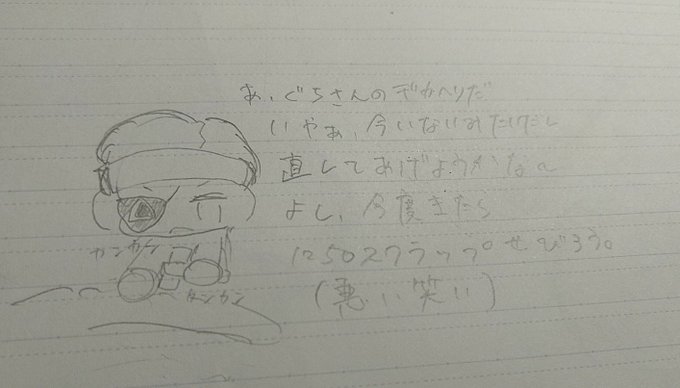 あ、ぐちさんのデカヘリだ
いやぁ、今いないみたいだし
直してあげようかなぁ
よし、今度きたら
1250スクラップせびろう。
(悪い笑い)
カンカン
カンカン